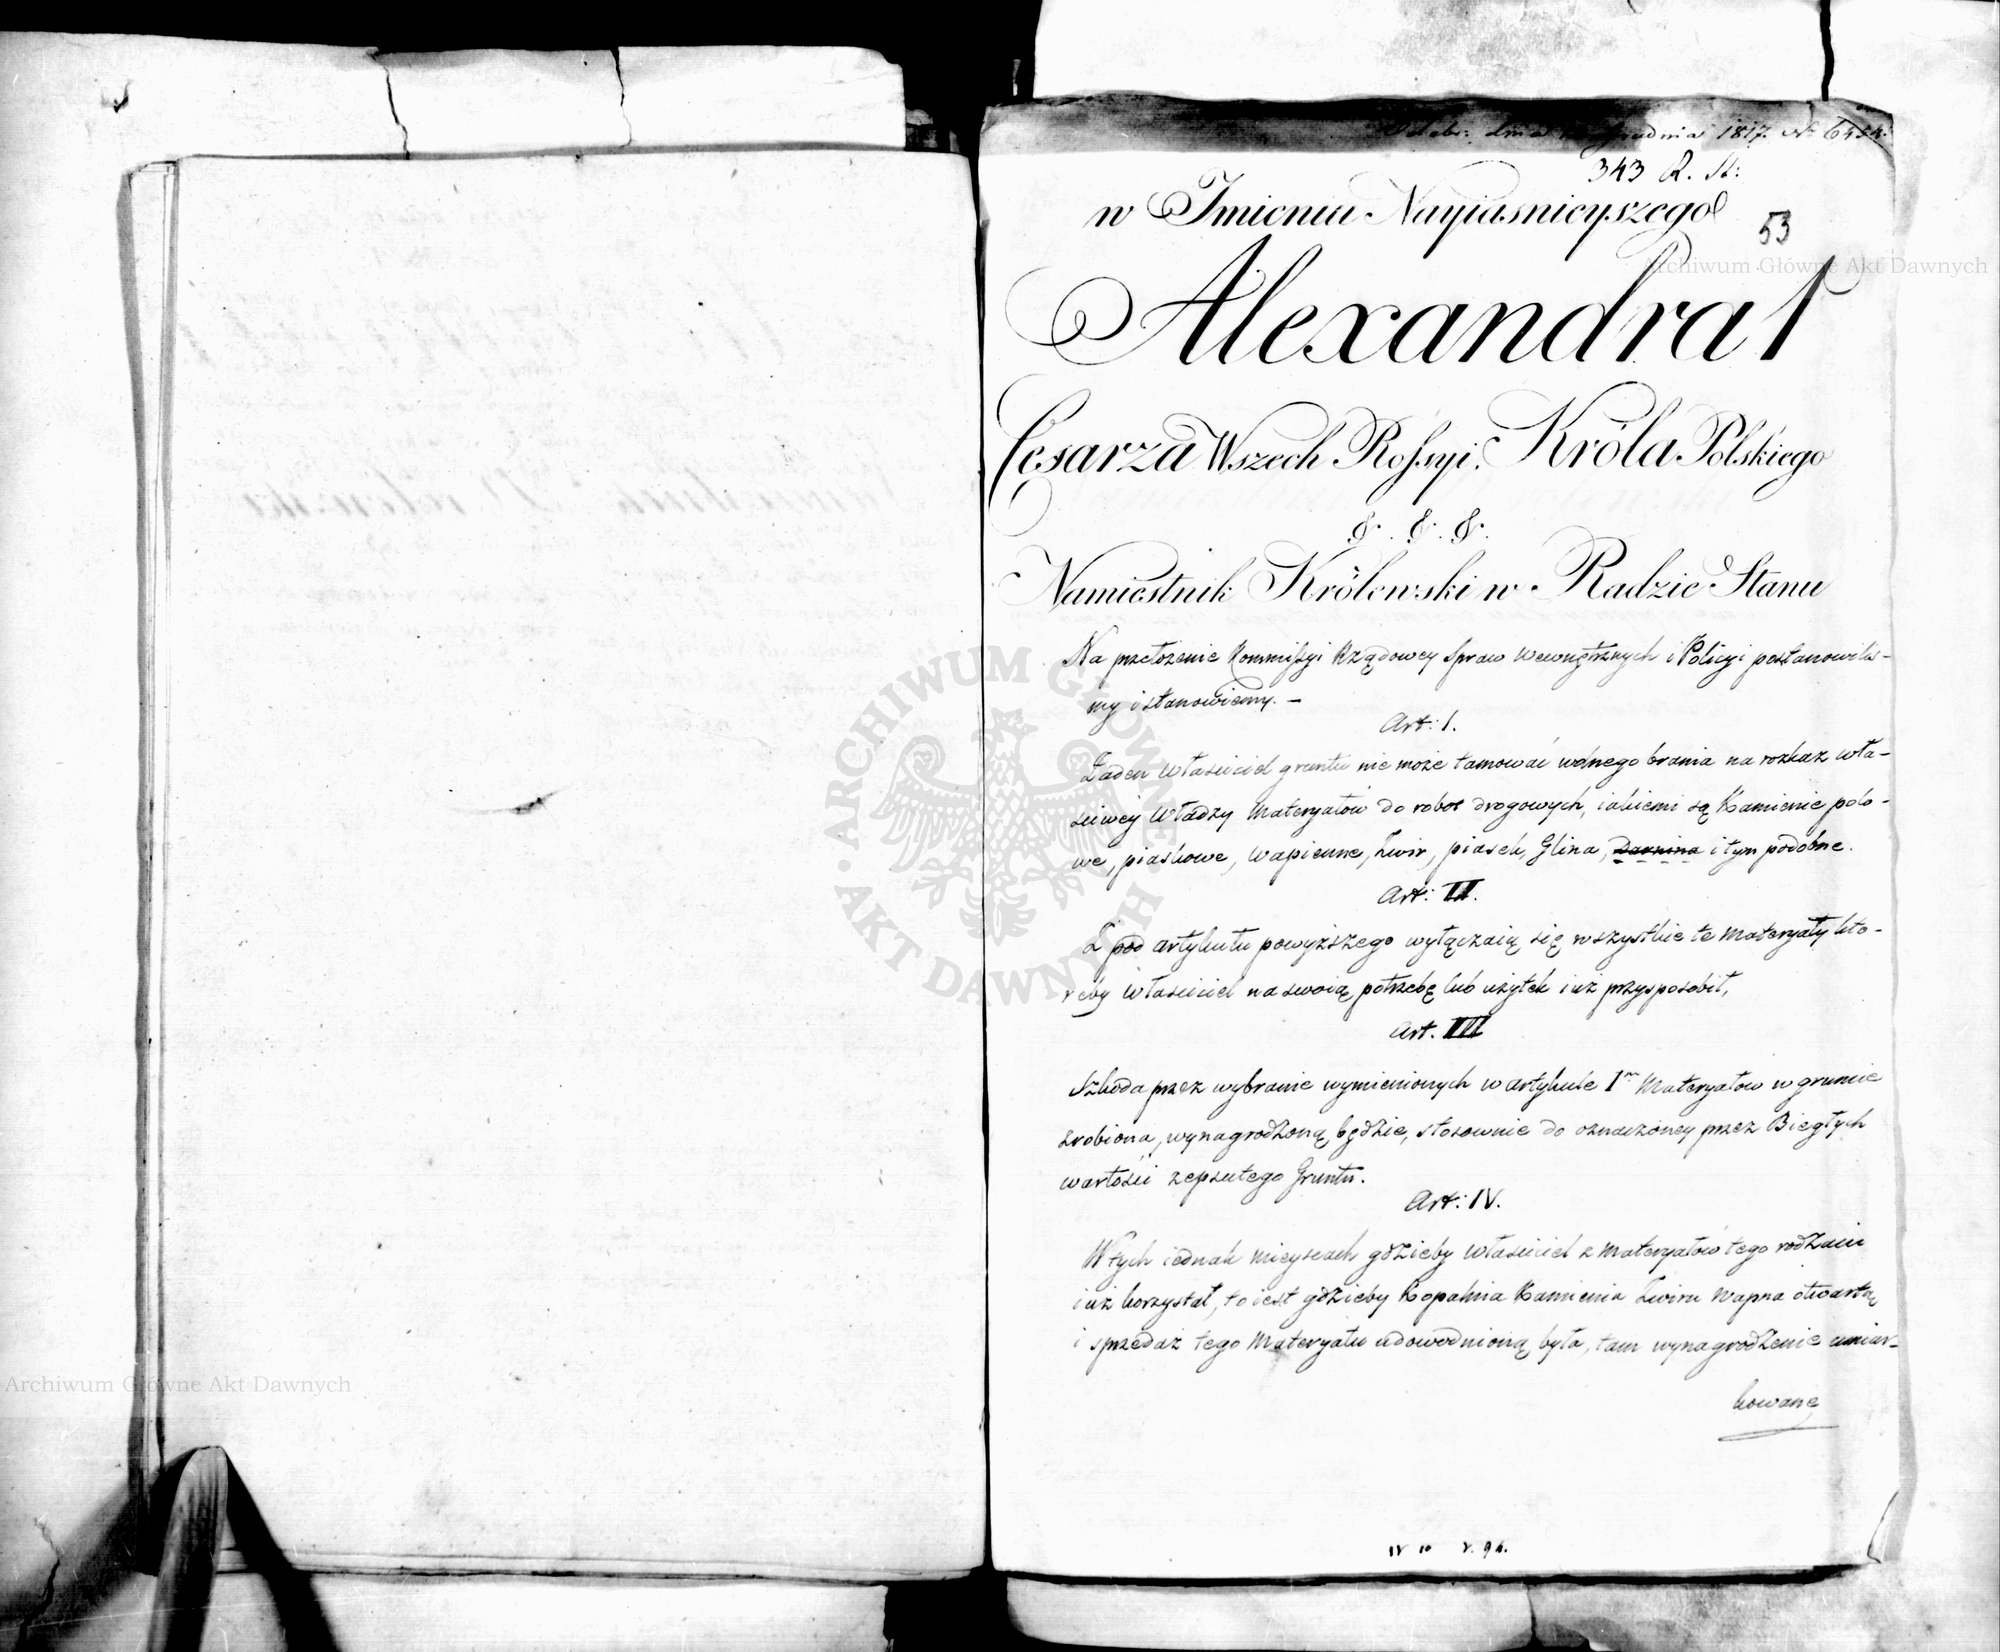 Grudnia 1817. N
343 R. St:
w Imieniu Nayiasnieyszego
53
Archiwum Główne Akt Dawnych
Alexandra I
Cesarza Wszech Rossyi, Króla Polskiego
&. &. &.
Namiestnik Królewski w Radzie Stanu
Na przełożenie Kommissyi Rządowey Spraw Wewnętrznych i Policyi postanowilis-
my i stanowiemy. –
Art: I.
Żaden Właściciel gruntu nie może tamować wolnego brania na rozkaz wła-
sciwey Władzy Materyałow do robot drogowych, iakiemi są Kamienie polo-
we, piaskowe, wapienne, Żwir, piasek, Glina, Darnina i tym podobne.
Art: II.
Z pod artykułu powyższego wyłączaią się wszystkie te Materyały kto-
reby Właściciel na swoią potrzebę lub użytek iuż przysposobił,
Art. III
Szkoda przez wybranie wymienionych w artykule I Materyałow w gruncie
zrobiona, wynagrodzoną będzie, stosownie do oznaczoney przez Biegłych
wartości zepsutego Gruntu.
Art: IV.
W tych iednak mieyscach gdzieby Właściciel z Materyałów tego rodzaiu
iuż korzystał, to iest gdzieby Kopalnia Kamienia Żwiru Wapna otwartą
i sprzedaż tego Materyału udowodnioną była, tam wynagrodzenie umiar-
kowane
ARCHIWUM GŁÓWNE · AKT DAWNYCH ·
Archiwum Główne Akt Dawnych